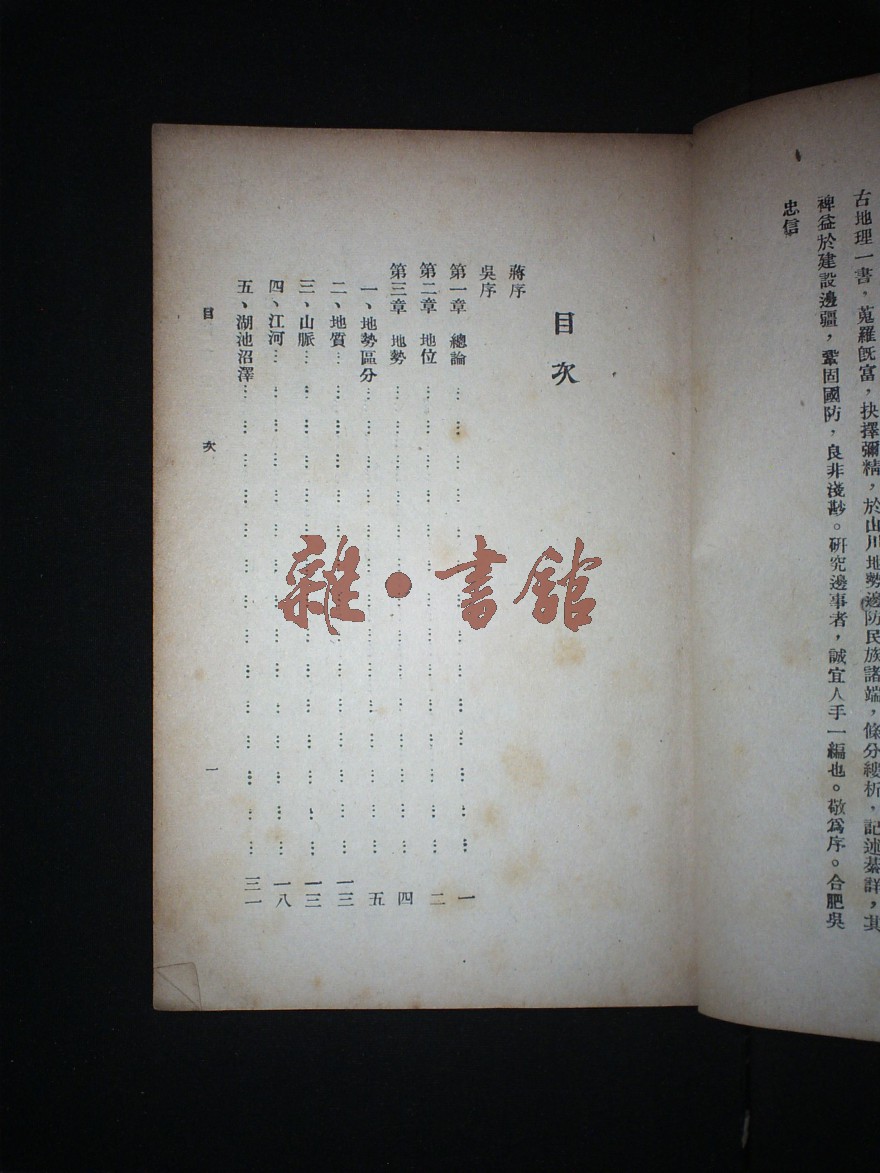 古地理一書，蒐羅旣富，抉擇彌精，於山川地勢邊防民族諸端，條分縷析，記述綦詳，其
裨益於建設邊疆，鞏固國防，良非淺尠。研究邊事者，誠宜人手一編也。敬爲序。合肥吳
忠信
目次
蔣序
吳序
第一章 總論………………一
第二章 地位………………二
第三章 地勢………………四
一、地勢區分………………五
二、地質………………一三
三、山脈………………一三
四、江河………………一八
五、湖池沼澤………………三一
目 次 一
雜·書館